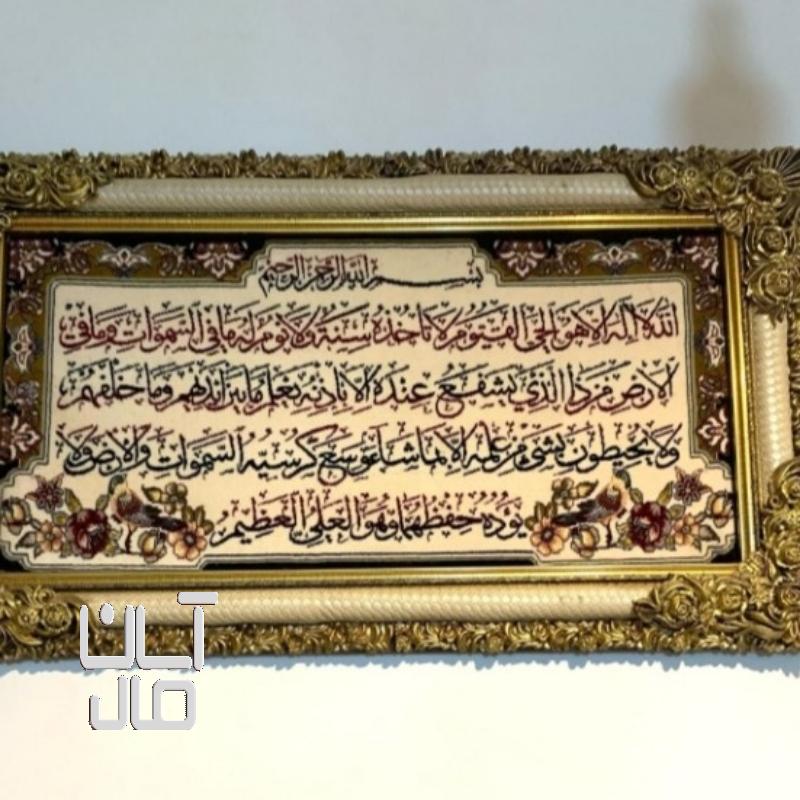 بسم الله الرحمن الرحیم
الله لا اله الا هو الحی القیوم لا تأخذه سنة ولا نوم له ما فی السموات وما فی
الارض من ذا الذی یشفع عنده الا باذنه یعلم ما بین ایدیهم وما خلفهم
ولا یحیطون بشیء من علمه الا بما شاء وسع کرسیه السموات والارض ولا
یؤده حفظهما وهو العلی العظیم
آسان
مال